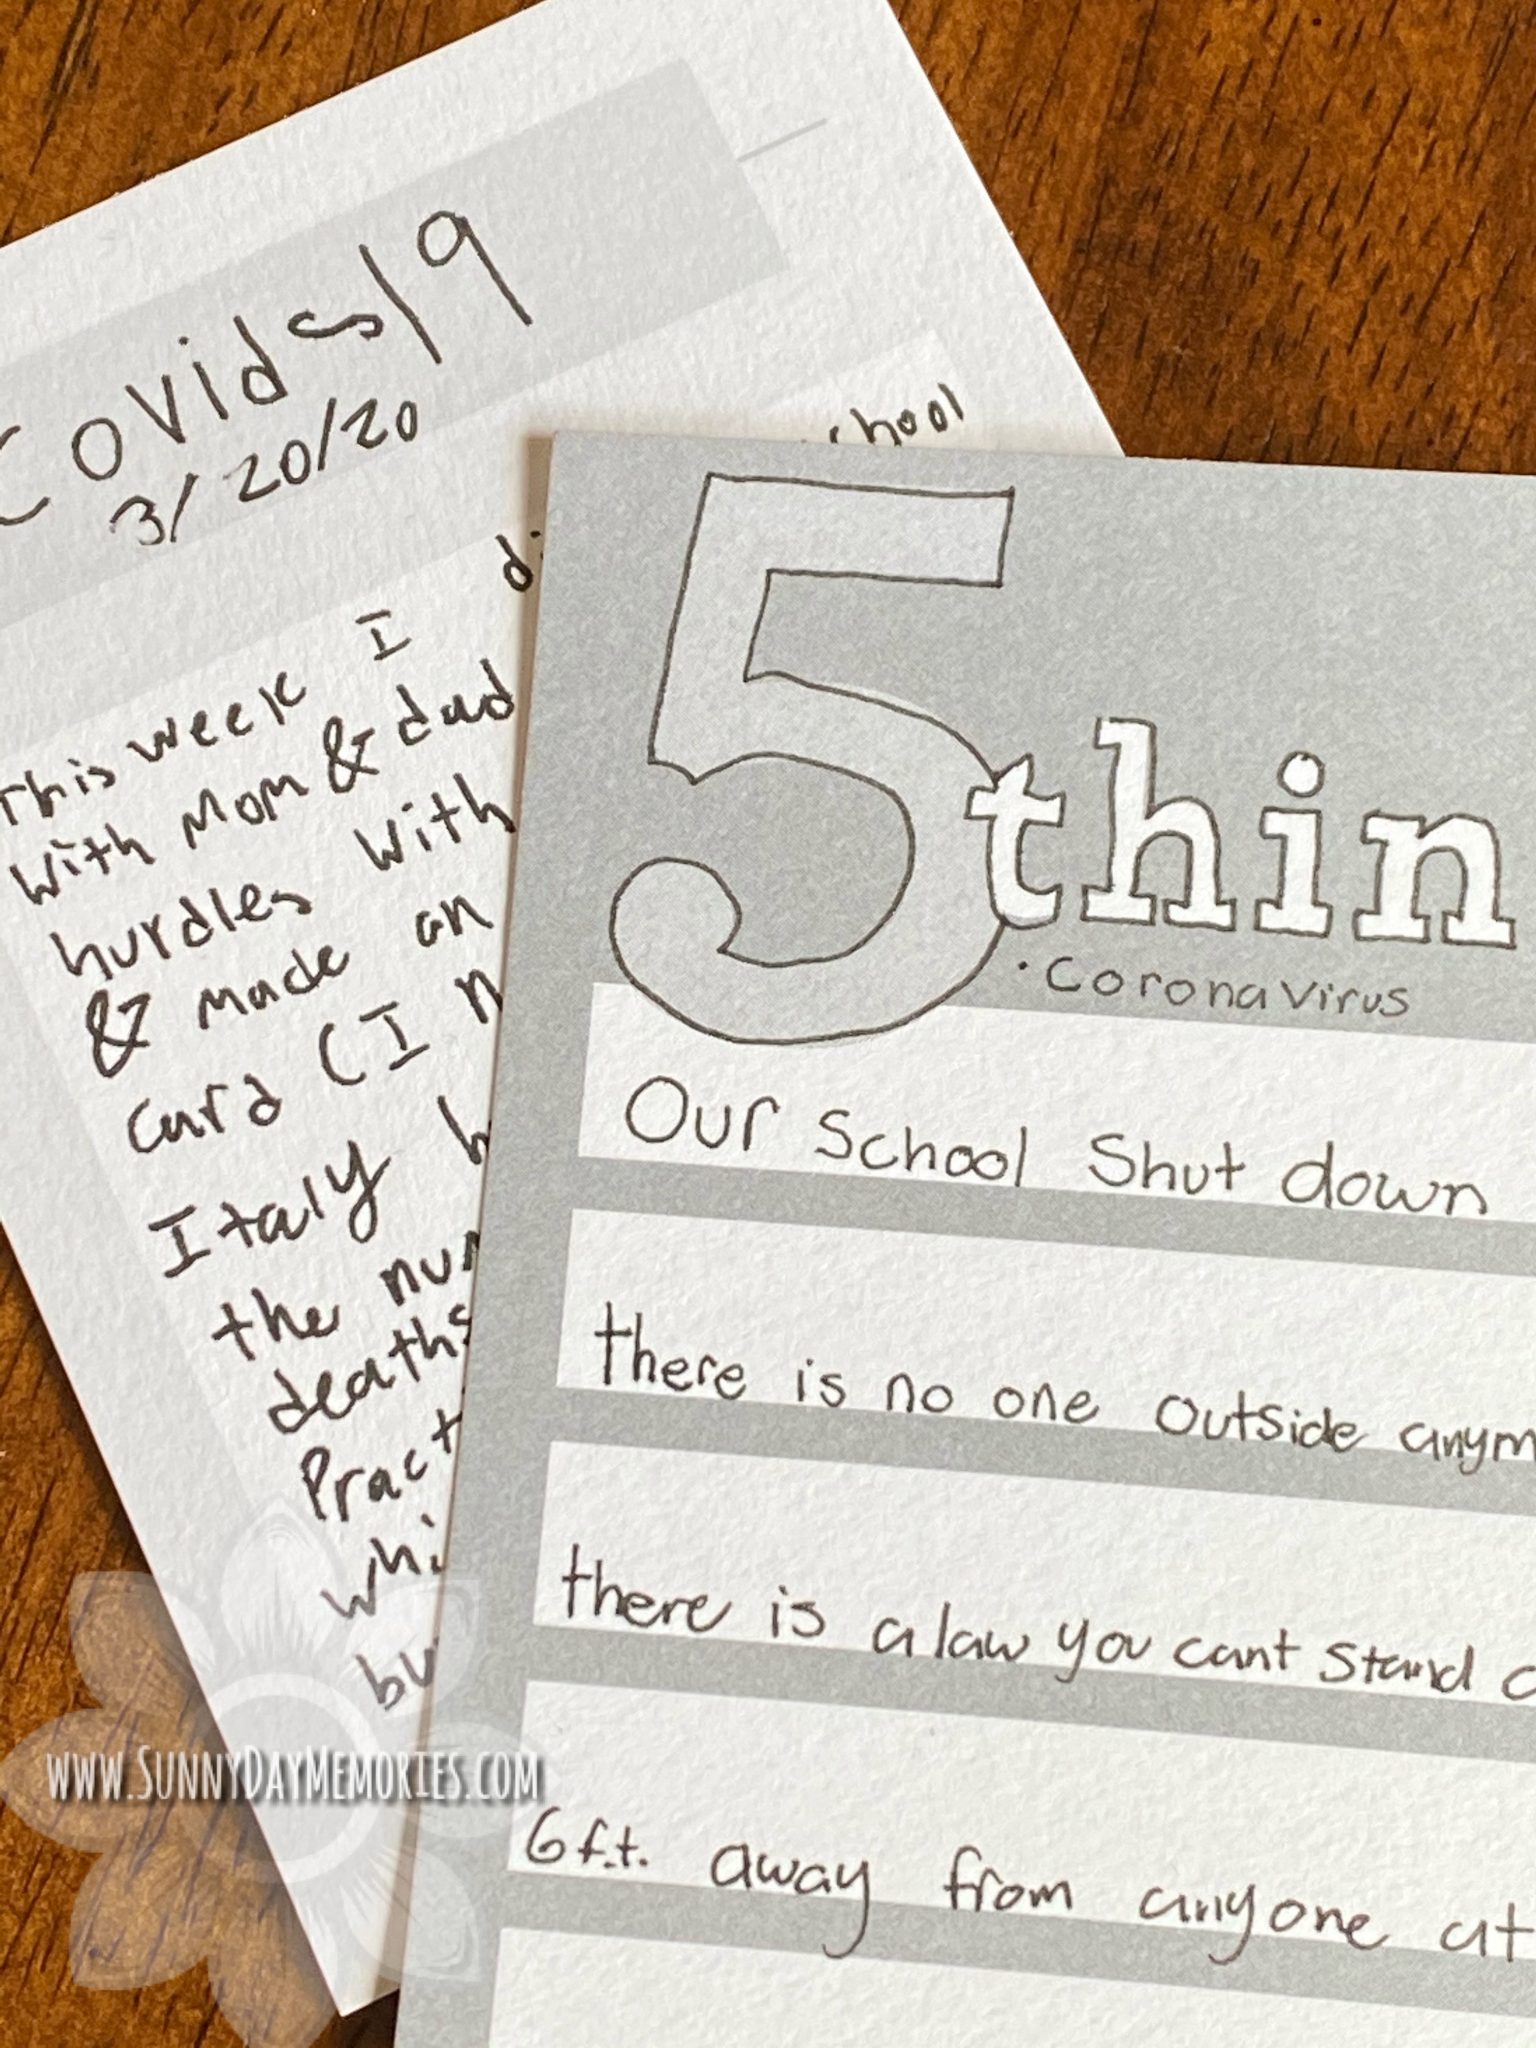 Covid~19
3/20/20
This week I
with Mom & dad
hurdles with
& made an
card (I
Italy
the
deaths
5 thin
• CoronaVirus
Our School Shut down
there is no one outside anym
there is a law you cant stand
6 f.t. away from anyone at
www.SunnyDayMemories.com